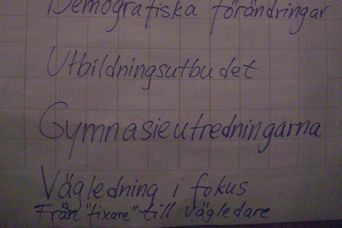 Demografiska förändringar
Utbildningsutbudet
Gymnasieutredningarna
Vägledning i fokus
Från "fixare" till vägledare